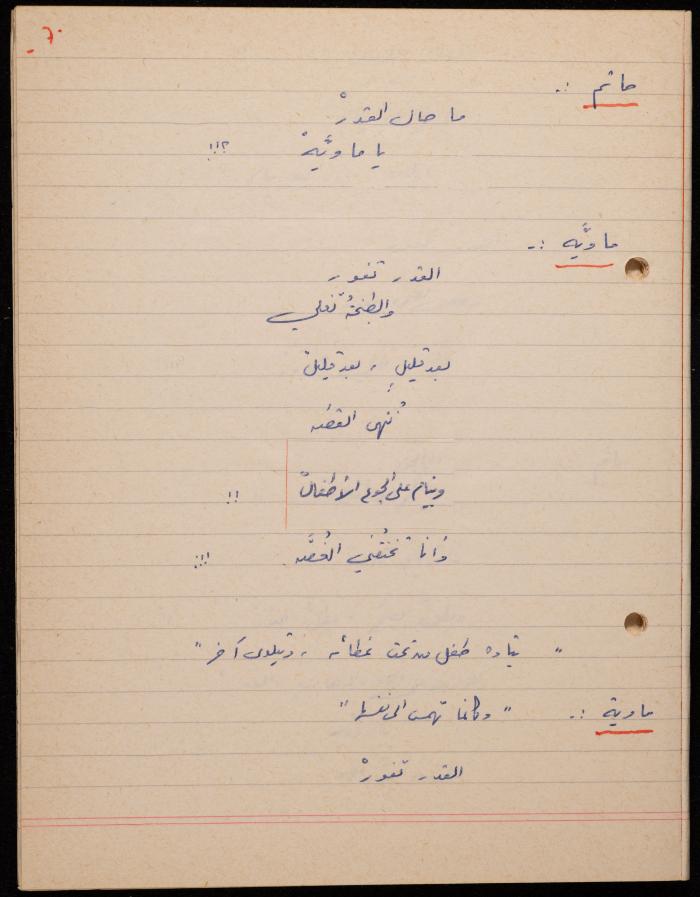 ٦٠
حاتم :.
ما حال القدرْ
يا ماويَّهْ ؟!!
ماويَّه :-
القدر تفور
والطبخةُ تغلي
بعد قليلٍ ، بعد قليلْ
تُنهى القصَّه
وينام على الجوع الأطفالْ !!
وأنا تخنقُني الغُصَّه !!!
" يتأوه طفل من تحت غطائه ، ويتلوى آخر "
ماوية :- " وكأنما تهمس الى نفسها "
القدر تفورْ